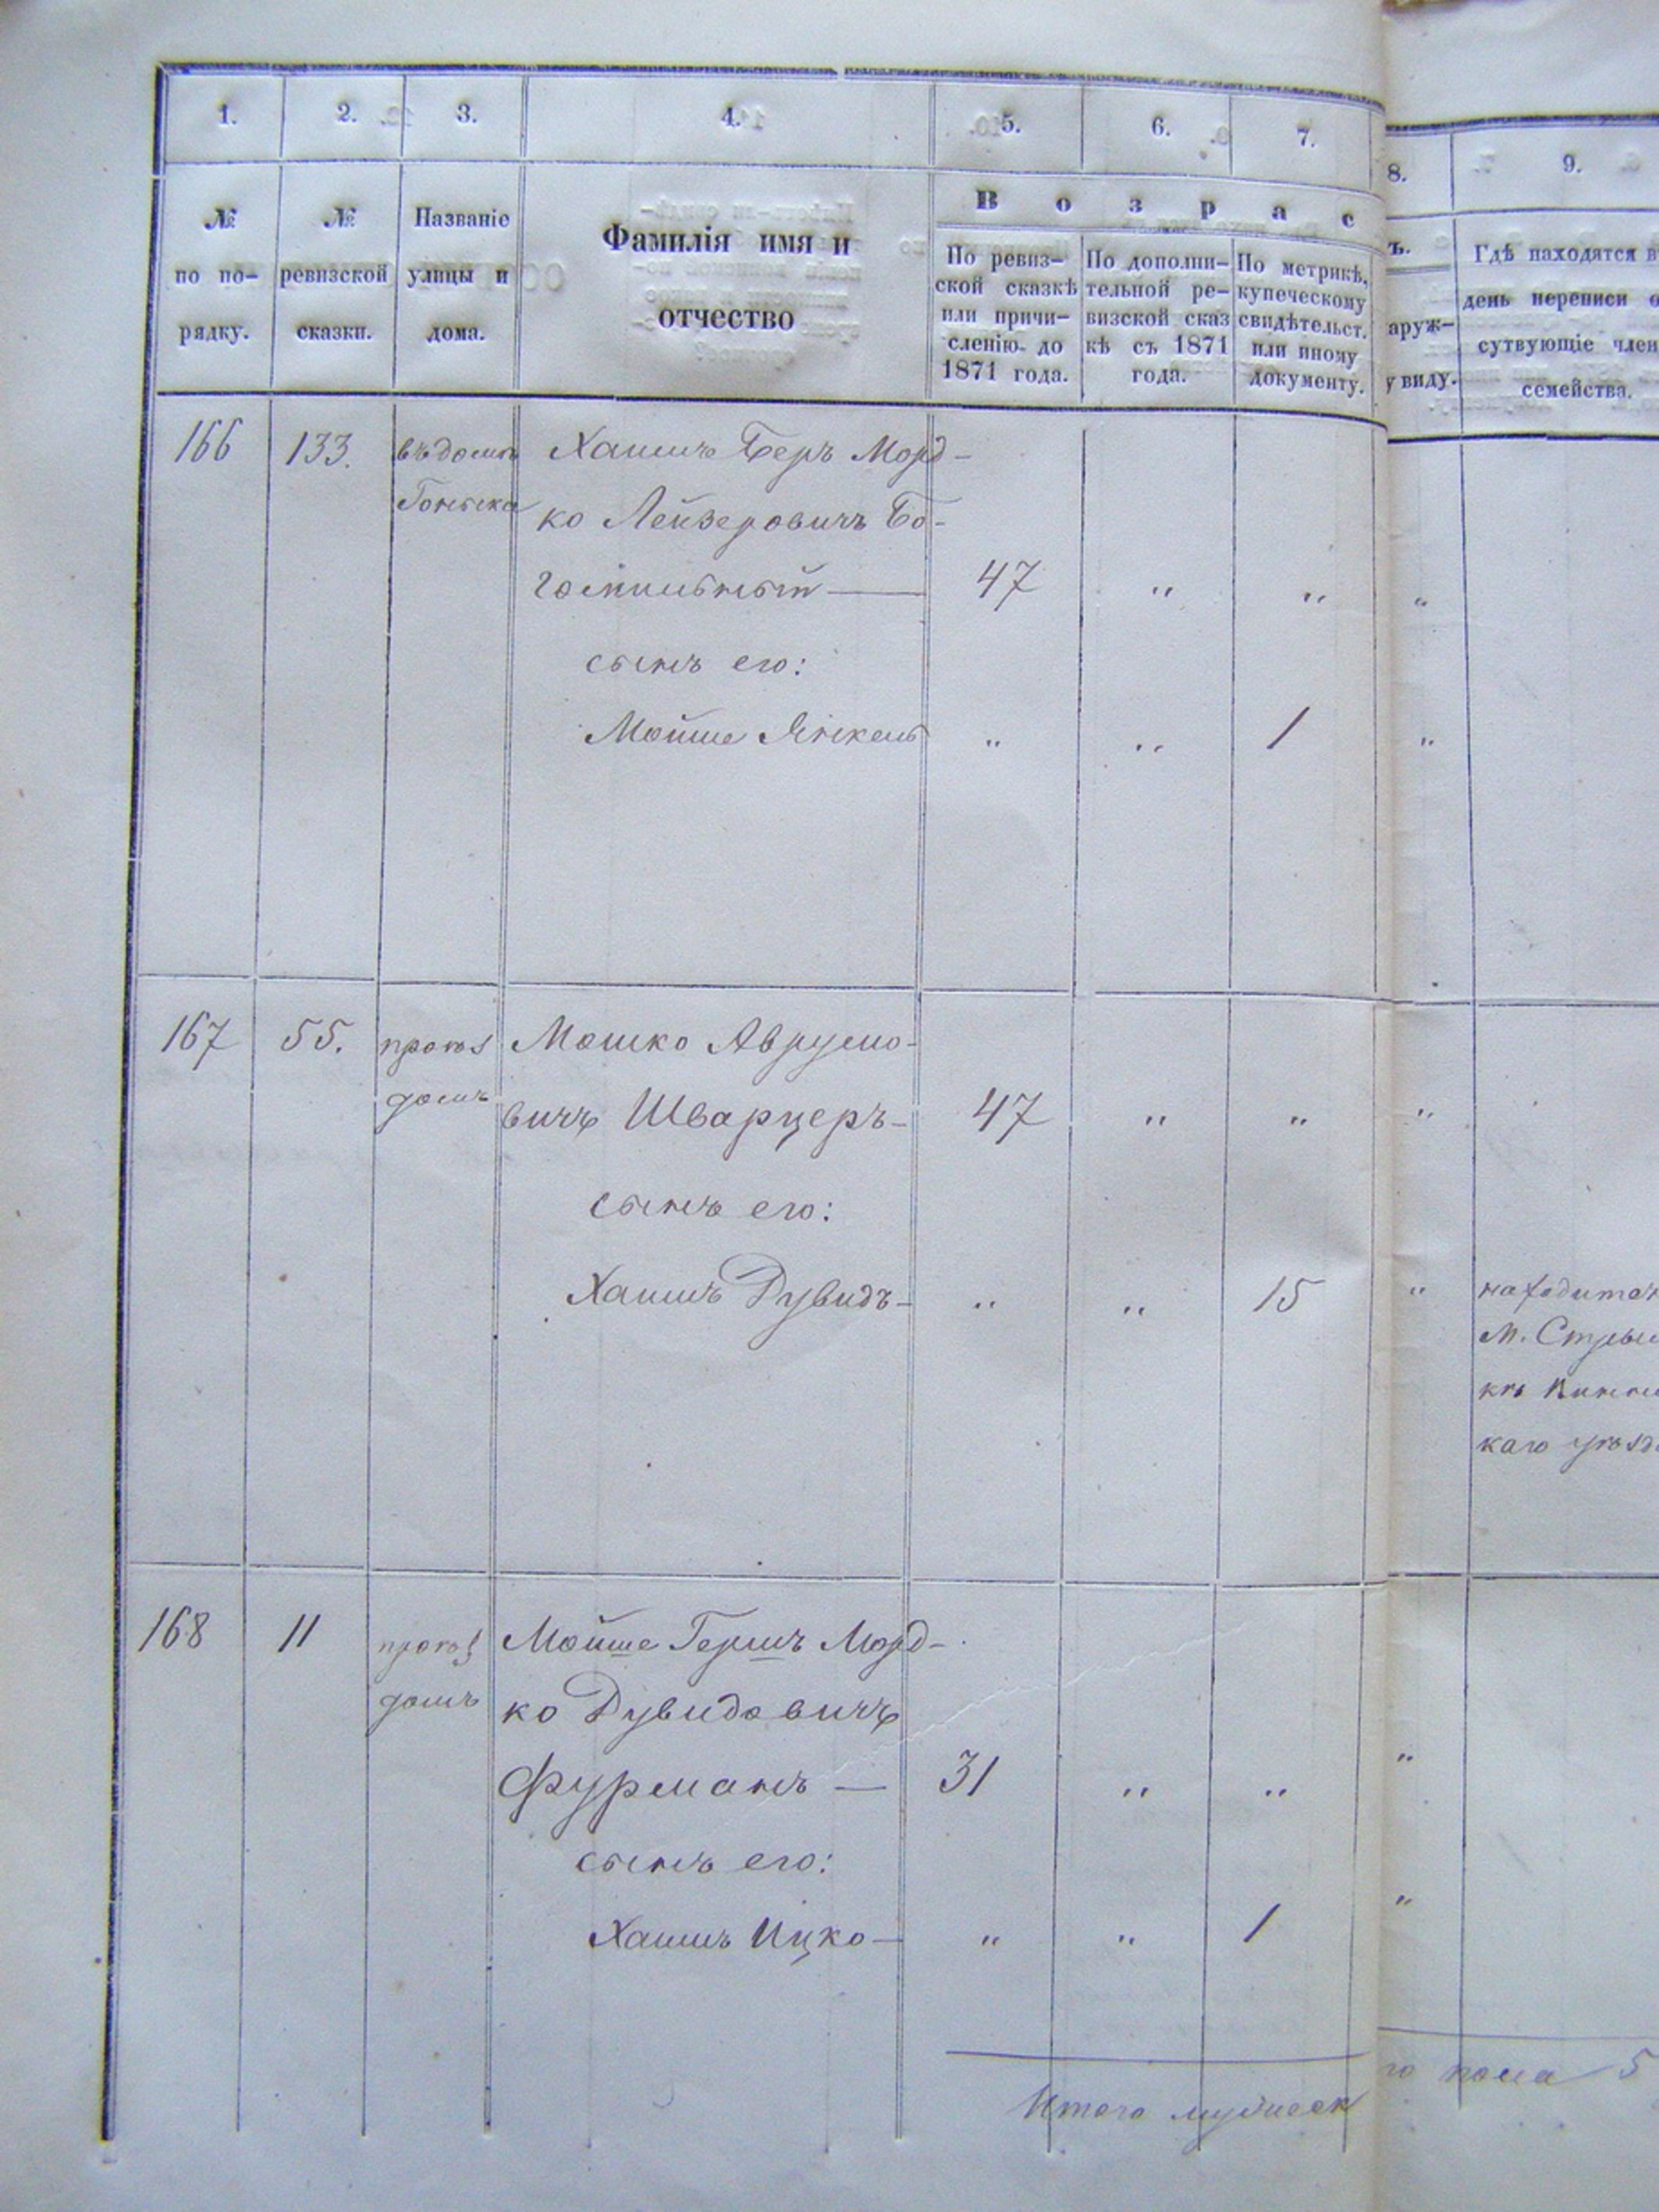 1. 2. 3. 4. 5. 6. 7. 8. 9.
№ по по-рядку.
№ ревизской сказки.
Названіе улицы и дома.
Фамилія имя и отчество
В о з р а с ъ.
По ревиз-
ской сказкѣ
или причи-
сленію до
1871 года.
По дополни-
тельной ре-
визской сказ
кѣ съ 1871
года.
По метрикѣ,
купеческому
свидѣтельст.
или иному
документу.
аруж-
у виду.
Гдѣ находятся в
день переписи о
сутвующіе член
семейства.
166 133. въ домѣ Хаимъ Беръ Морд-
ко Лейзеровичъ Бо-
гомильный — 47 " " "
сынъ его:
Мойше Янкель " " 1 "
167 55. Мошко Аврумо-
домъ вичъ Шварцеръ- 47 " " "
сынъ его:
Хаимъ Дувидъ- " " 15 " находится
М.
каго уѣзд
168 11 Мойше Гершъ Морд-
домъ ко Дувидовичъ
Фурманъ — 31 " " "
сынъ его:
Хаимъ Ицко- " " 1 "
Итого мужеск го пола 5